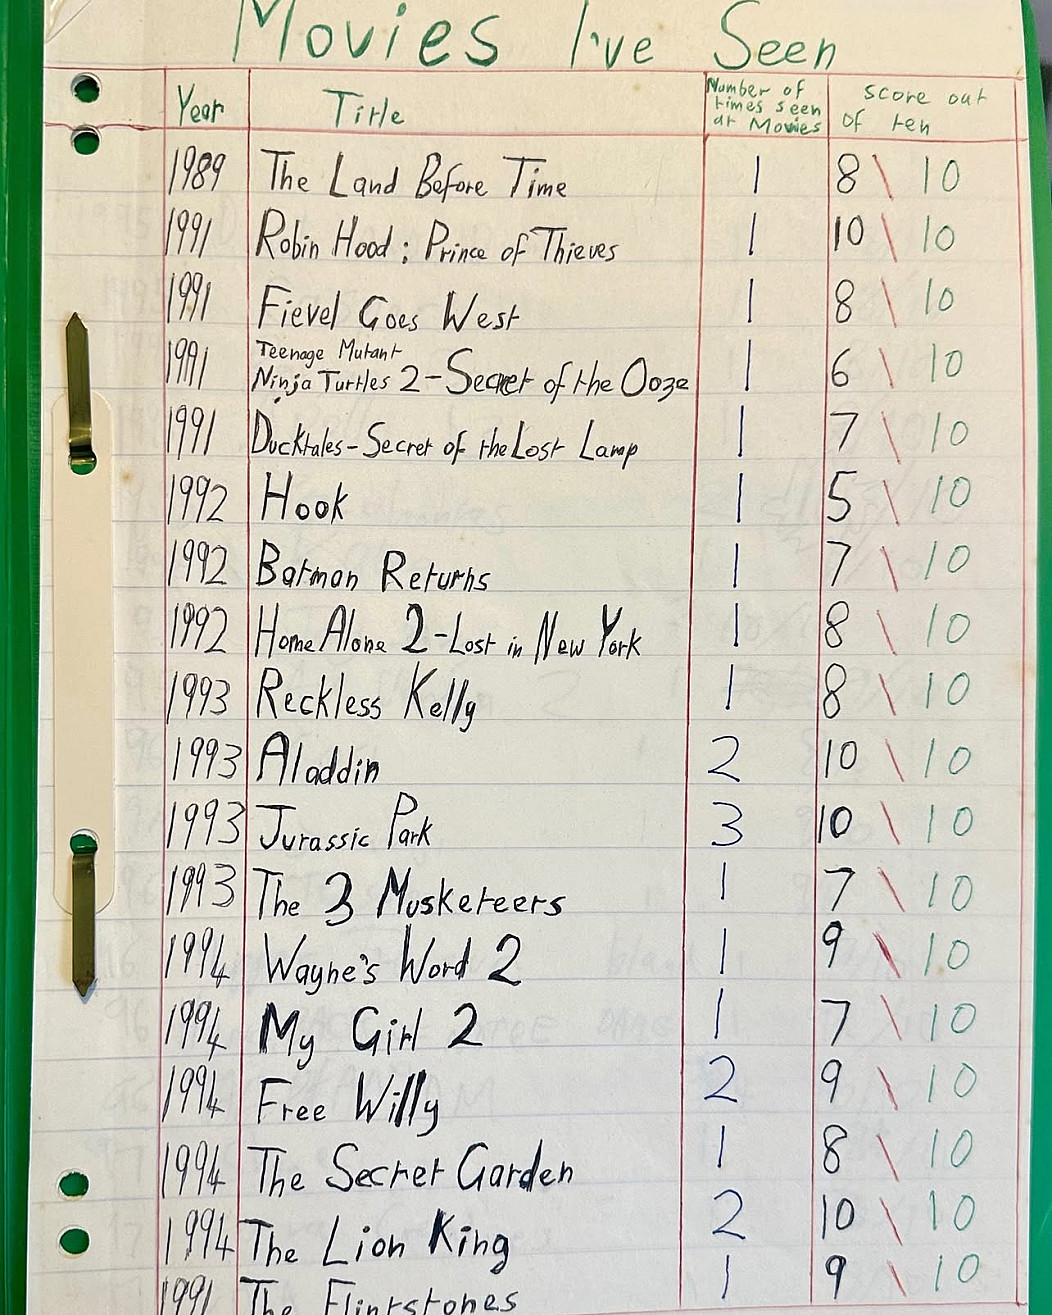 Movies I've Seen
Year Title Number of times seen at Movies score out of ten
1989 The Land Before Time 1 8 \ 10
1991 Robin Hood: Prince of Thieves 1 10 \ 10
1991 Fievel Goes West 1 8 \ 10
1991 Teenage Mutant Ninja Turtles 2-Secret of the Ooze 1 6 \ 10
1991 Ducktales-Secret of the Lost Lamp 1 7 \ 10
1992 Hook 1 5 \ 10
1992 Batman Returns 1 7 \ 10
1992 Home Alone 2-Lost in New York 1 8 \ 10
1993 Reckless Kelly 1 8 \ 10
1993 Aladdin 2 10 \ 10
1993 Jurassic Park 3 10 \ 10
1993 The 3 Musketeers 1 7 \ 10
1994 Wayne's Word 2 1 9 \ 10
1994 My Girl 2 1 7 \ 10
1994 Free Willy 2 9 \ 10
1994 The Secret Garden 1 8 \ 10
1994 The Lion King 2 10 \ 10
The Flintstones 1 9 \ 10